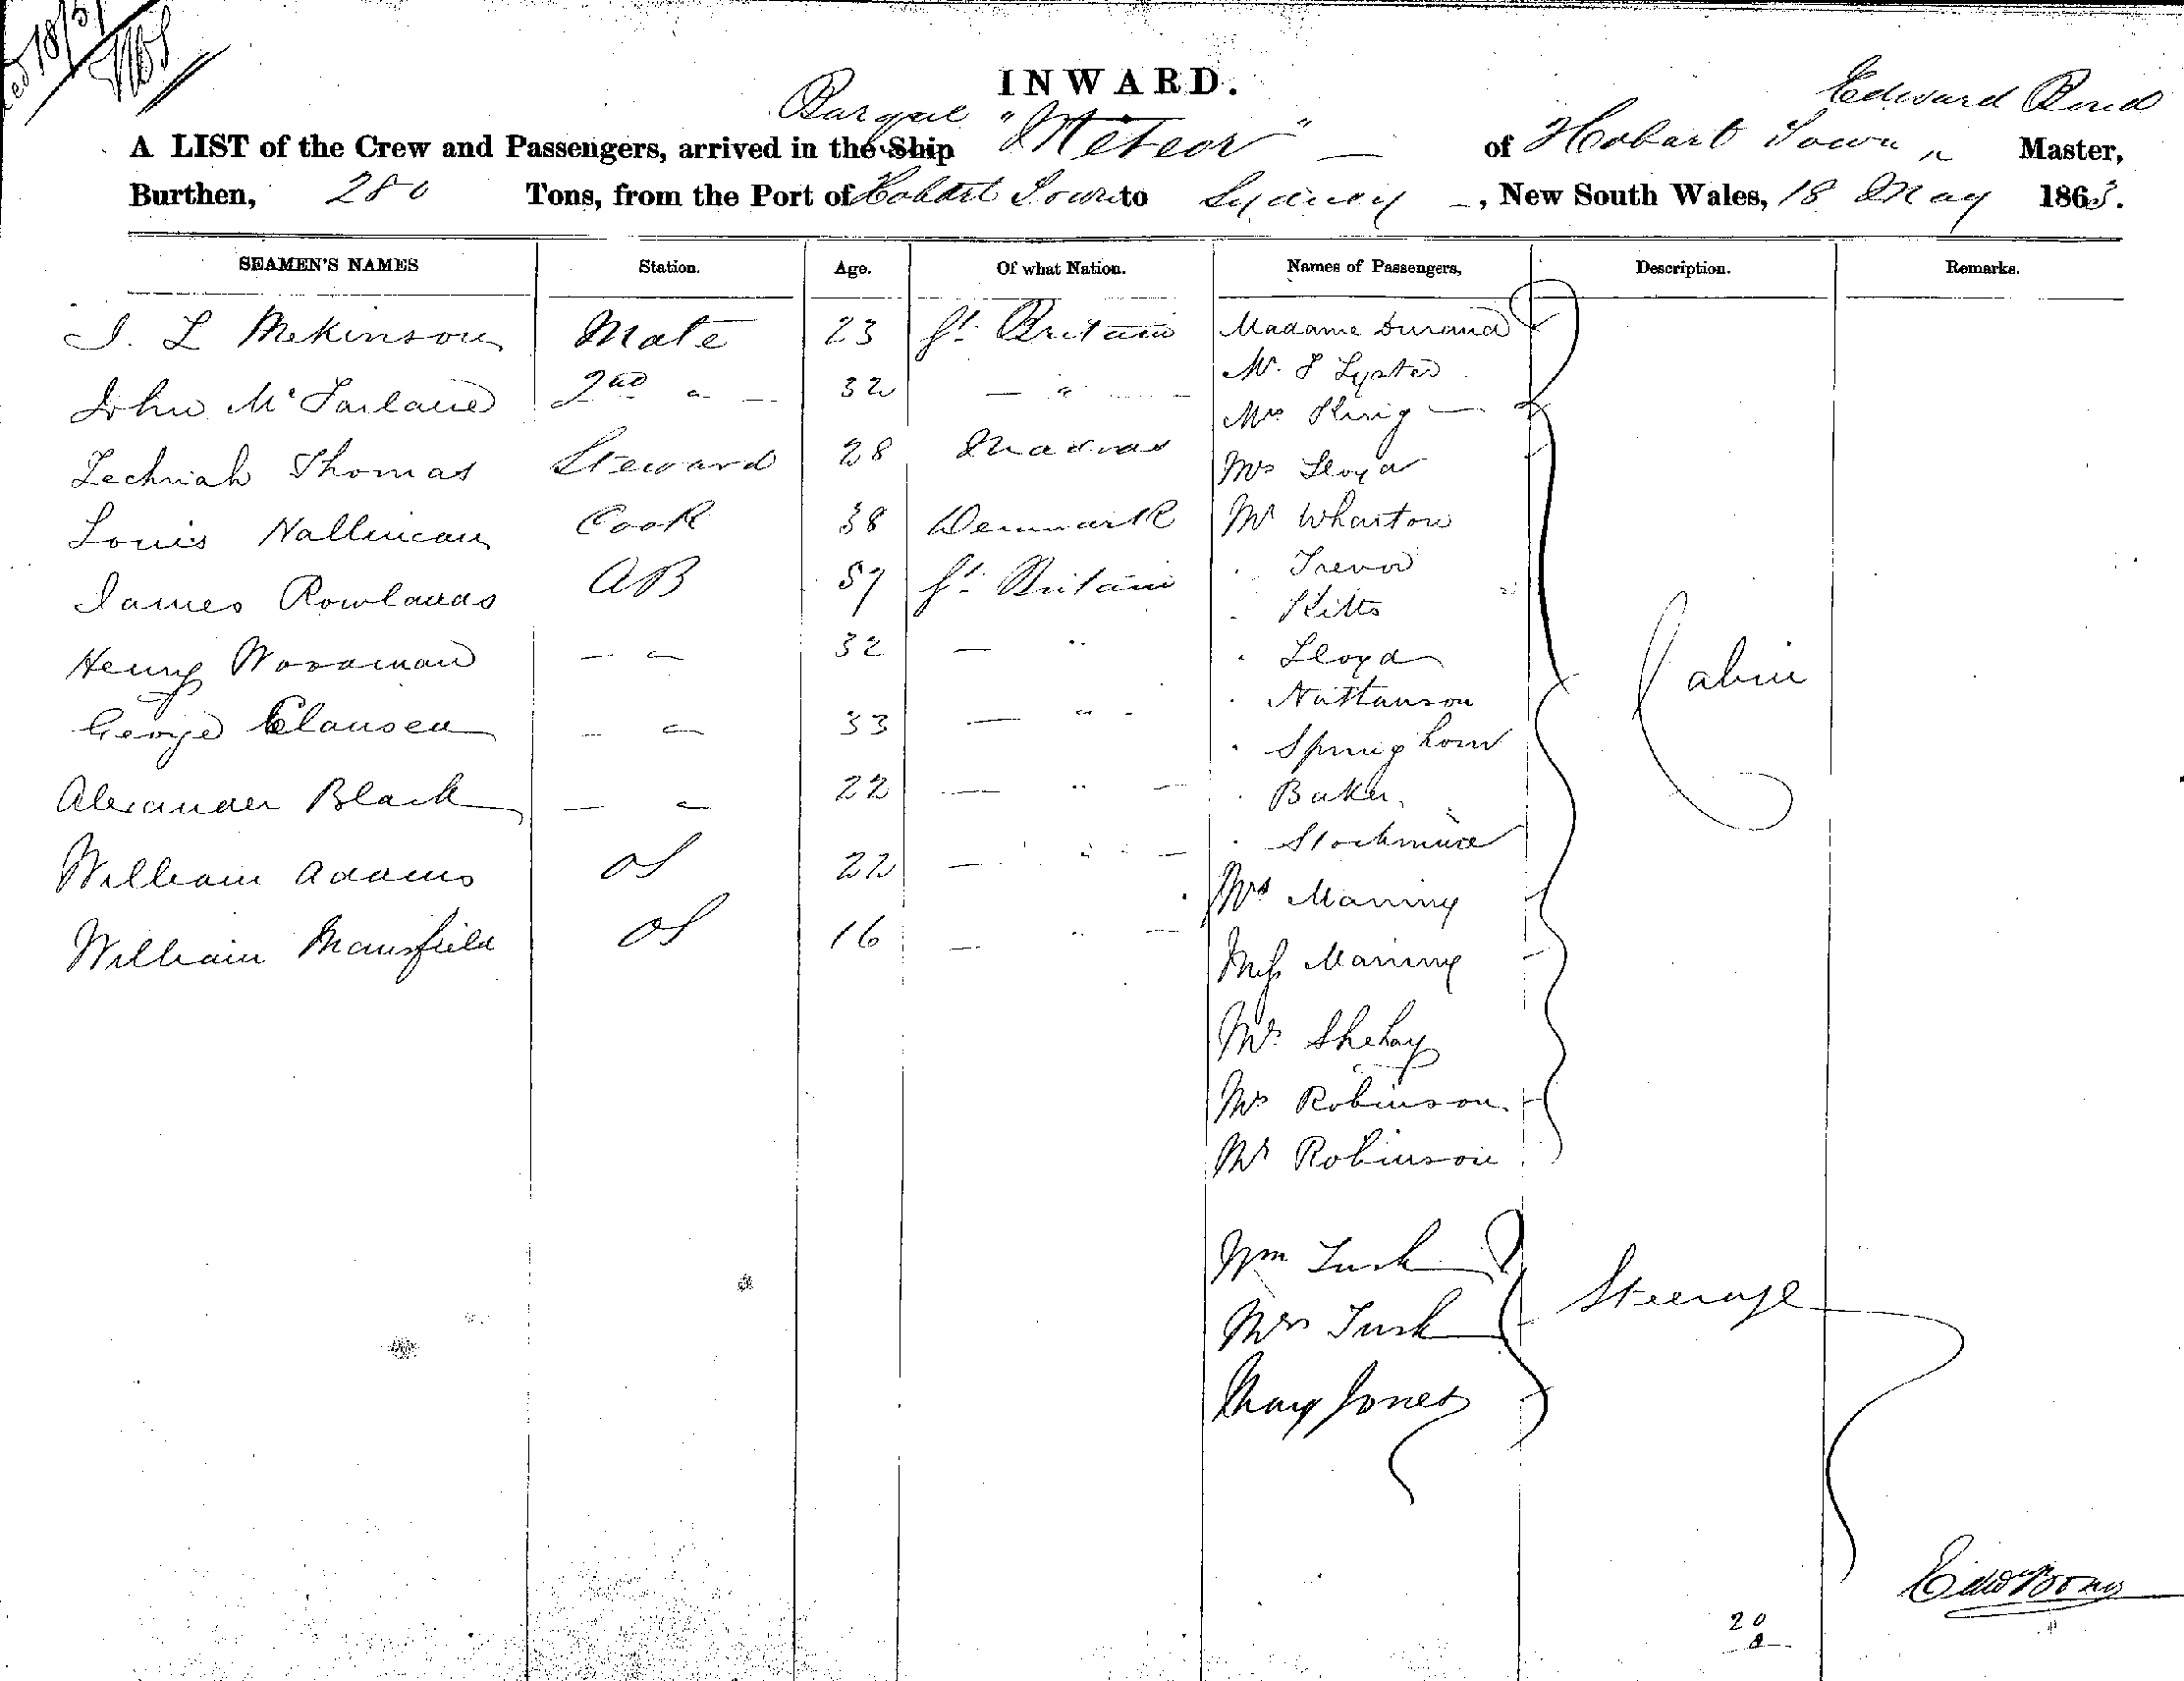 INWARD.
Edward Bond
Barque "Meteor"
A LIST of the Crew and Passengers, arrived in the Ship of Hobart Town " Master,
Burthen, 280 Tons, from the Port of Hobart Town to Sydney, New South Wales, 18 May 1863.
SEAMEN'S NAMES Station. Age. Of what Nation. Names of Passengers, Description. Remarks.
J. L Mekinson Mate 23 Gt. Britain Madame Durand
John McFarlane 2nd " 32 — " Mr. F Lyster
Mrs King
Zechriah Thomas Steward 28 Madras Mrs Lloyd
Louis Cook 38 Denmark Mr Wharton
James Rowlands AB 57 Gt. Britain " Trevor
" Kitts
Henry Woodman — " 32 — " " Lloyd
" Nattanson
George Clausen — " 33 — " " Springhorn
Alexander Black — " 22 — " " Baker
" Stockmire
William Adams OS 22 — " Mrs Manning
William Mansfield OS 16 — " Miss Manning
Mr. Shehay
Mrs Robinson
Mr Robinson
Cabin
Wm Tusk
Mrs Tusk
Mary Jones
Steerage
Edwd Bond
20